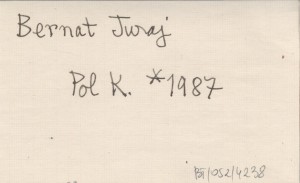 Bernat Juraj
Pol K. *1987
BT/052/4238